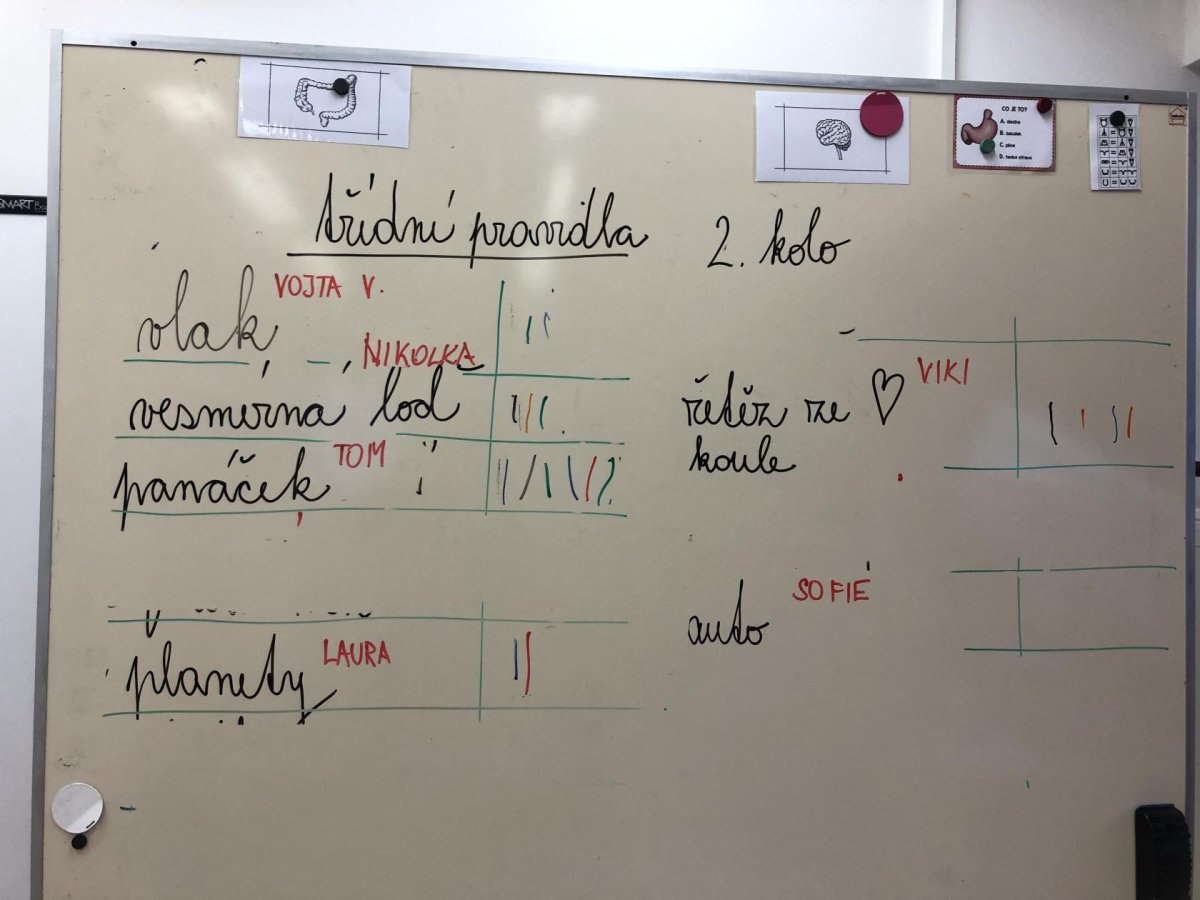 SMART Bo
CO JE TO?
A. slezina
B. žaludek
C. plíce
D. tenké střevo
třídní pravidla
2. kolo
vlak VOJTA V.
vesmírná loď NIKOLKA
panáček TOM
planety LAURA
řetěz ze ♡ VIKI
koule
auto SOFIE